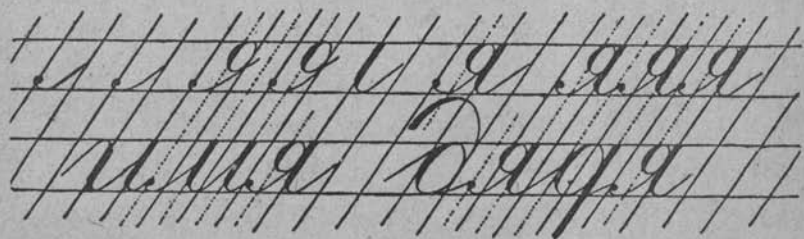 я яяя
имя дядя